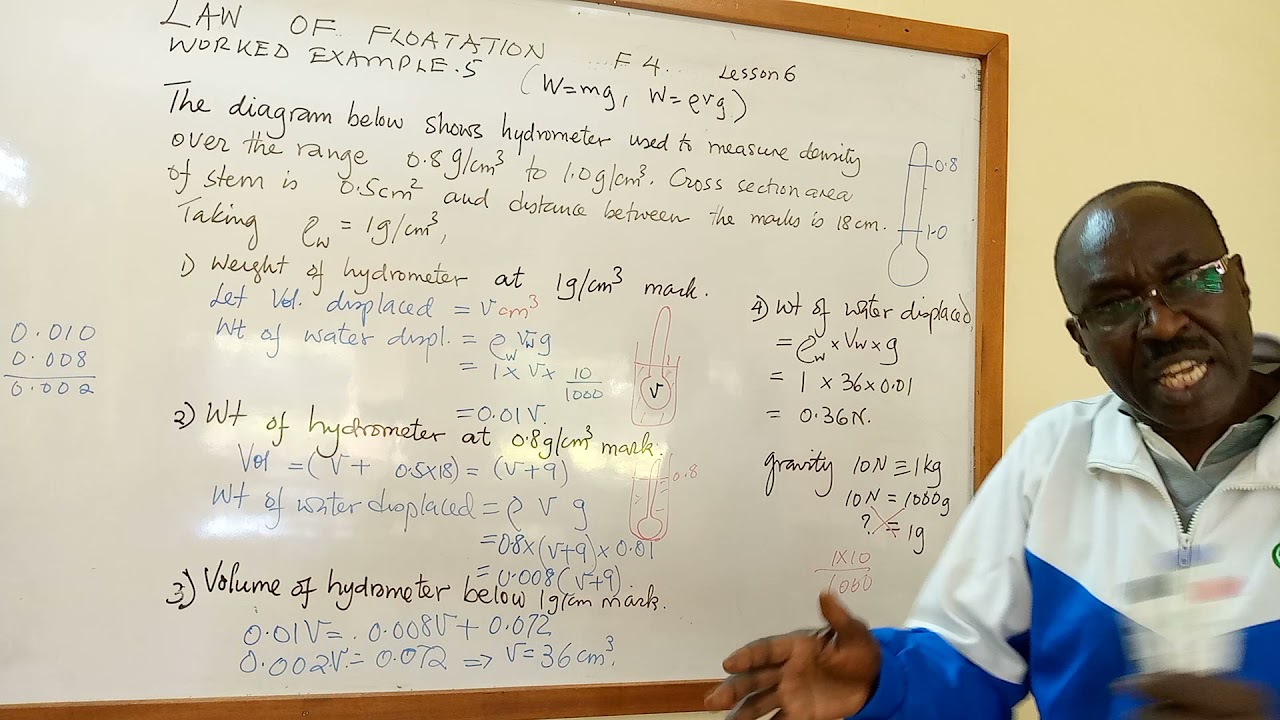 LAW OF FLOATATION F4. Lesson 6
WORKED EXAMPLE.5 (W=mg, W=ρvg)
The diagram below shows hydrometer used to measure density
over the range 0.8g/cm³ to 1.0g/cm³. Cross section area
of stem is 0.5cm² and distance between the marks is 18cm.
Taking ρw = 1g/cm³,
0.8
1.0
1) Weight of hydrometer at 1g/cm³ mark.
Let Vol. displaced = Vcm³
Wt of water displ. = ρw Vw g
= 1 × V × 10/1000
= 0.01V.
V
2) Wt of hydrometer at 0.8g/cm³ mark.
Vol = (V + 0.5×18) = (V+9)
Wt of water displaced = ρ V g
= 0.8×(V+9)×0.01
= 0.008(V+9).
0.8
3) Volume of hydrometer below 1g/cm mark.
0.01V = 0.008V + 0.072
0.002V = 0.072 => V = 36cm³.
0.010
0.008
0.002
4) Wt of water displaced,
= ρw × Vw × g
= 1 × 36 × 0.01
= 0.36N.
gravity 10N ≡ 1kg
10N = 1000g
? = 1g
1×10
1000